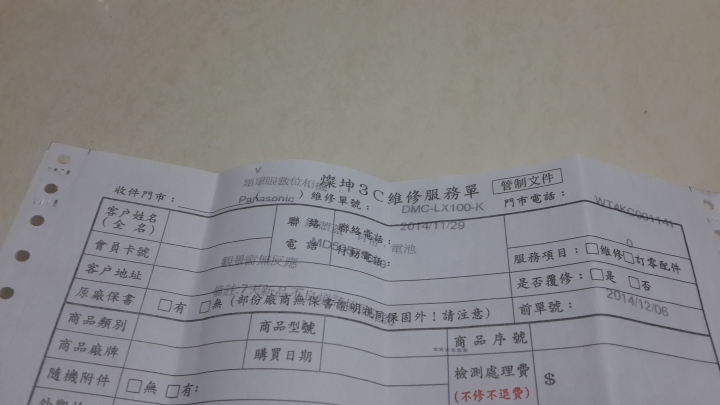 燦坤3C維修服務單 管制文件
收件門市： 維修單號： 門市電話：
Panasonic DMC-LX100-K
2014/11/29
客戶姓名
(全 名)
聯 絡 聯絡電話：
電 話 行動電話：
電池
會員卡號
服務項目：□維修□訂零配件
客戶地址
觀景窗無反應
是否覆修：□是 □否
原廠保書 □有 □無(部份廠商無保書證明視同保固外！請注意)
前單號：
2014/12/06
商品類別 商品型號 商品序號
******
商品廠牌 購買日期
檢測處理費 $
(不修不退費)
隨機附件 □無 □有：